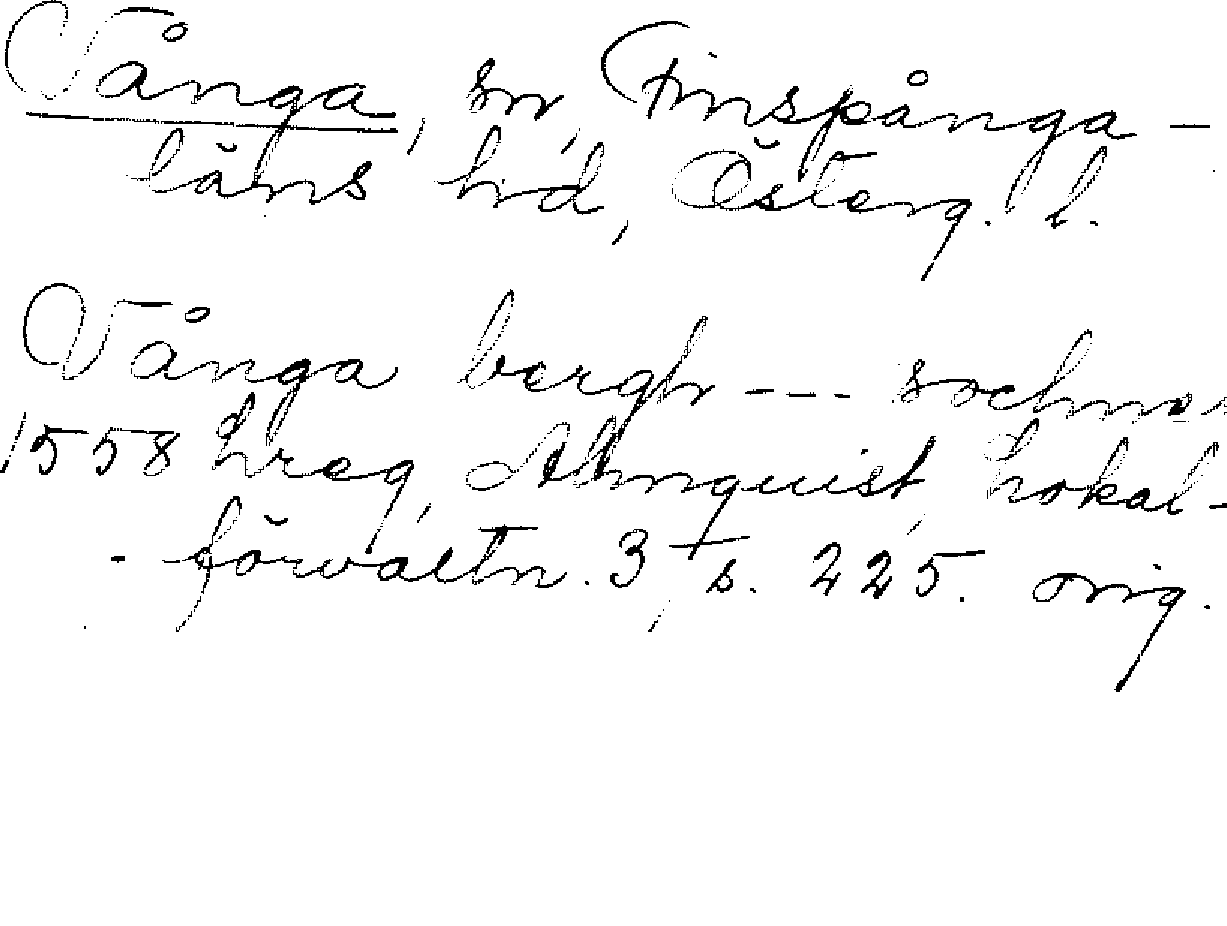 Vånga, sn, Finspånga-
läns hd, Österg. l.
Vånga bergh --- sochner
1558 Lreg, Almquist, Lokal-
- förvaltn. 3, s. 225. orig.